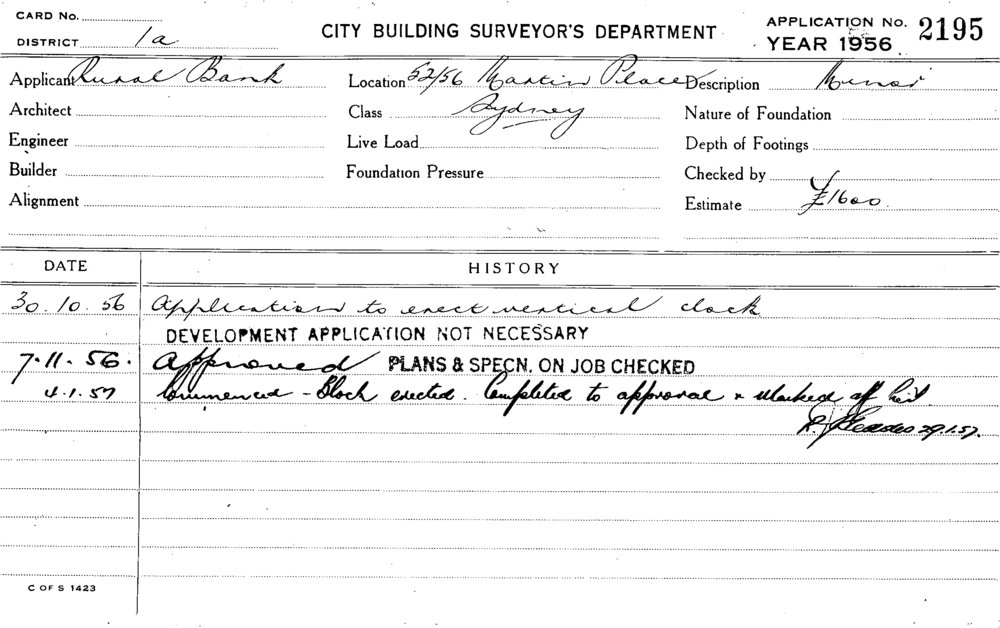 CARD No.
DISTRICT 1a
CITY BUILDING SURVEYOR'S DEPARTMENT
APPLICATION No. 2195
YEAR 1956
Applicant Rural Bank
Location 52/56 Martin Place
Description Minor
Architect
Class Sydney
Nature of Foundation
Engineer
Live Load
Depth of Footings
Builder
Foundation Pressure
Checked by
Alignment
Estimate £1600
DATE HISTORY
30.10.56 Application to erect vertical clock
DEVELOPMENT APPLICATION NOT NECESSARY
7.11.56. Approved PLANS & SPECN. ON JOB CHECKED
4.1.57 Commenced - Clock erected. Completed to approval & marked off
29.1.57.
C OF S 1423